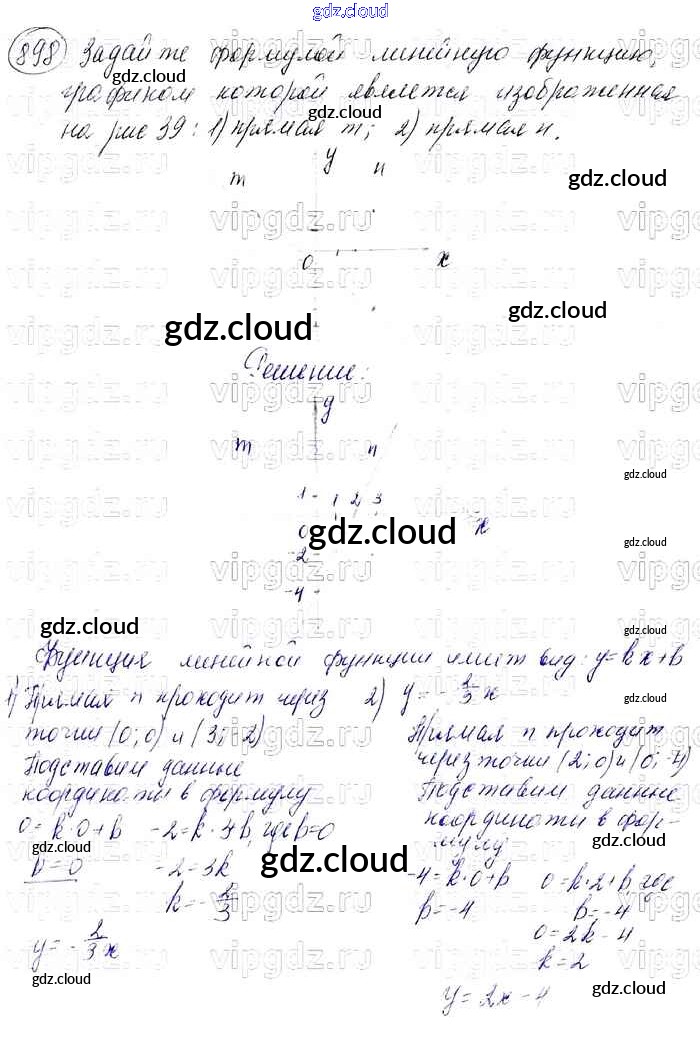 gdz.cloud
898 Задайте формулой линейную функцию,
gdz.cloud
графиком которой является изображенная
на рис 39: 1) прямая m; 2) прямая n.
gdz.cloud
m y n
gdz.cloud
0 x
gdz.cloud
gdz.cloud
Решение:
y
m n
gdz.cloud
1 1 2 3
0 gdz.cloud x
gdz.cloud
-2
-4
gdz.cloud
gdz.cloud
Функция линейной функции имеет вид: y=kx+b
1) Прямая n проходит через
точки (0;0) и (3;-2)
gdz.cloud
Подставим данные
координаты в формулу
0=k·0+b -2=k·3+b, где b=0
b=0 -2=3k
gdz.cloud
k=-2/3
y=-2/3x
gdz.cloud
2) y=-2/3x
gdz.cloud
Прямая n проходит
через точки (2;0) и (0;-4)
Подставим данные
координаты в фор-
мулу
gdz.cloud
-4=k·0+b 0=k·2+b, где
b=-4 b=-4
0=2k-4
k=2
gdz.cloud
y=2x-4
vipgdz.ru